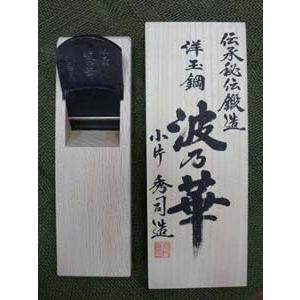 伝承秘伝鍛造
洋玉鋼
波乃華
小片秀司造